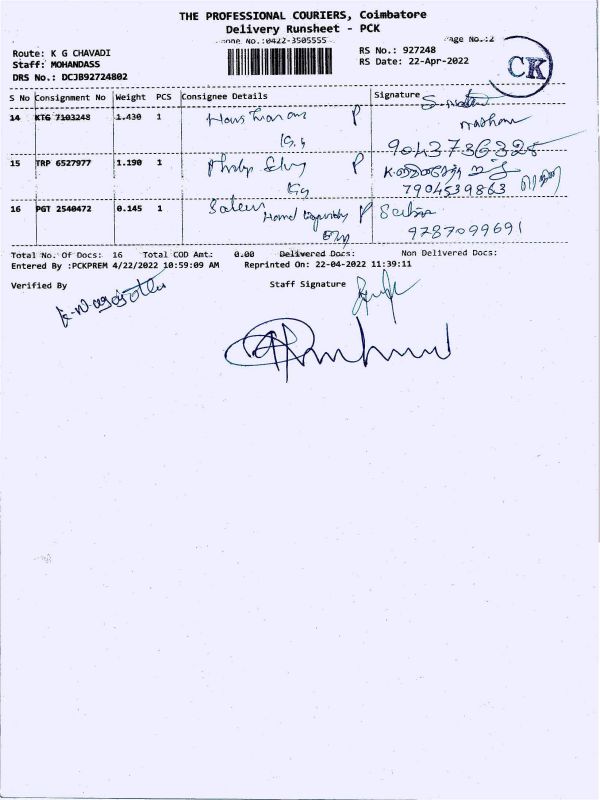 THE PROFESSIONAL COURIERS, Coimbatore
Delivery Runsheet - PCK
No.:0422-3505555
Page No.:2
Route: K G CHAVADI
Staff: MOHANDASS
DRS No.: DCJB92724802
RS No.: 927248
RS Date: 22-Apr-2022
CK
S No Consignment No Weight PCS Consignee Details Signature
14 KTG 7103248 1.430 1 P
9043736325
15 TRP 6527977 1.190 1 P
7904539863
16 PGT 2540472 0.145 1 P
9787099691
Total No. Of Docs: 16 Total COD Amt: 0.00 Delivered Docs: Non Delivered Docs:
Entered By :PCKPREM 4/22/2022 10:59:09 AM Reprinted On: 22-04-2022 11:39:11
Verified By Staff Signature